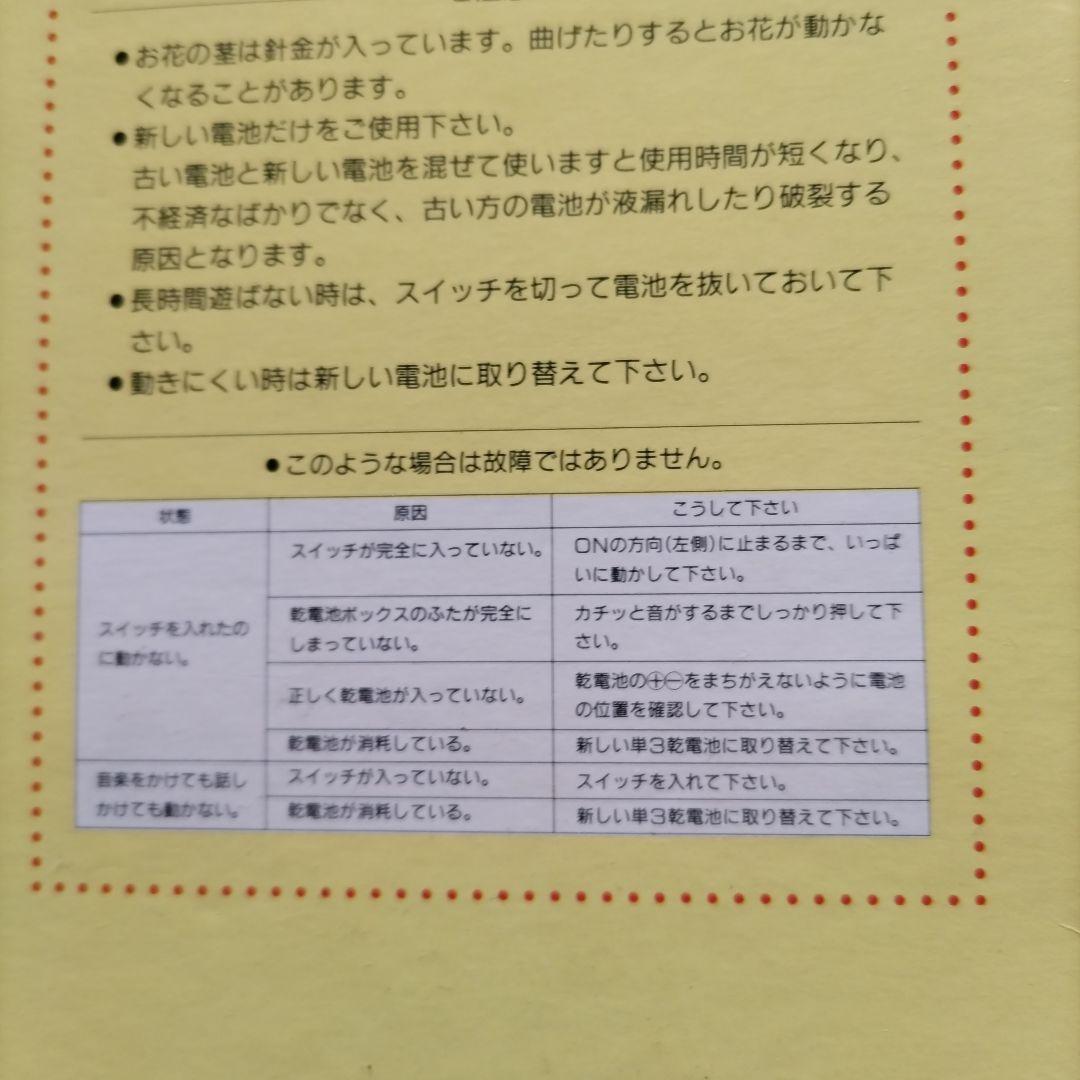 ●お花の茎は針金が入っています。曲げたりするとお花が動かな
くなることがあります。
●新しい電池だけをご使用下さい。
古い電池と新しい電池を混ぜて使いますと使用時間が短くなり、
不経済なばかりでなく、古い方の電池が液漏れしたり破裂する
原因となります。
●長時間遊ばない時は、スイッチを切って電池を抜いておいて下
さい。
●動きにくい時は新しい電池に取り替えて下さい。
●このような場合は故障ではありません。
状態 原因 こうして下さい
スイッチを入れたの
に動かない。
スイッチが完全に入っていない。
ONの方向(左側)に止まるまで、いっぱ
いに動かして下さい。
乾電池ボックスのふたが完全に
しまっていない。
カチッと音がするまでしっかり押して下
さい。
正しく乾電池が入っていない。
乾電池の⊕⊖をまちがえないように電池
の位置を確認して下さい。
乾電池が消耗している。
新しい単3乾電池に取り替えて下さい。
音楽をかけても話し
かけても動かない。
スイッチが入っていない。
スイッチを入れて下さい。
乾電池が消耗している。
新しい単3乾電池に取り替えて下さい。